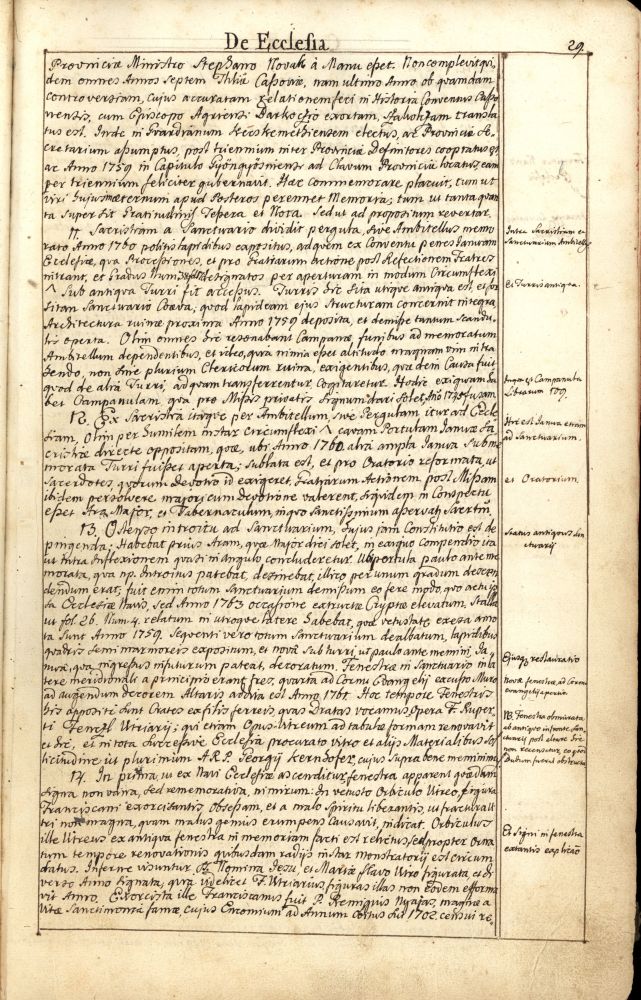 De Ecclesia
29
Provinciæ Ministro Stephano Novak à Manu esset. Non complevit qui-
dem omnes Annos septem Thliæ Cassoviæ, nam ultimo Anno ob quamdam
controversiam, cujus accuratam relationem feci in Historia Conventus Casso
viensis, cum Episcopo Agriensi Barkoczio exortam, transla
tus est. Inde in Gvardianum Kecskemethiensem electus, ac Provinciæ Se-
cretarium assumptus, post triennium inter Provinciæ Definitores cooptatus est
ac Anno 1759 in Capitulo Gyöngyösiensi ad Clavum Provinciæ locatus, eam
per triennium feliciter gubernavit. Hæc commemorare placuit, tum ut
viri hujus æternum apud Posteros perennet Memoria; tum ut tanta quan
ta superfit Gratitudinis Tessera et Nota. Sed ut ad propositum revertar.
11. Sacristiam a Sanctuario dividit pergula, sive Ambitellus memo
rato Anno 1760 politis lapidibus expositus, ad quem ex Conventu penes Januam
Ecclesiæ, qua Processiones, et pro Gratiarum Actione post Refectionem Fratres
intrant, et Gradus Num. designatos per aperturam in modum Circumflexi
^ sub antiqua Turri fit accessus. Turris hæc sita utique antiqua est, et for
sitan Sanctuario Coæva; quod lapideam ejus structuram concernit integra,
Architectura ruinæ proxima Anno 1759 deposita, et demisse tantum scandu-
lis operta. Olim omnes hic resonabant Campanæ, funibus ad memoratum
Ambitellum dependentibus, et ideo, quia nimia esset altitudo magnam vim in tra
hendo, non sine plurium Clericorum ruina, exigentibus, qua dem Causa fuit,
quod de alia Turri, ad quam transferrentur Cogitaretur. Hodie exiguam ha
bet Campanulam, qua pro Missis privatis signum dari solet, Ano 1738 fusam.
12. Ex Sacristia itaque per Ambitellum, sive Pergulam itur ad Eccle
siam, Olim per humilem instar circumflexi ^ cavam Portulam Januæ Sa
cristiæ directe oppositam, quæ, ubi Anno 1760 alia ampla Janua sub me
morata Turri fuisset aperta; sublata est, et pro Oratorio reformata, ut
Sacerdotes, quorum devotio id exigeret, Gratiarum Actionem post Missam
ibidem persolvere majori cum devotione valerent, siquidem in Conspectu
esset Ara Major, et Tabernaculum, in quo Sanctissimum asservatur Sacrtum.
13. Ostenso introitu ad Sanctuarium, hujus jam Constitutio est de
pingenda; Habebat prius Aram, quæ Major dici solet, in exiguo Compendio ita
ut intra inflexionem quasi in angulo concluderetur. Ubi portula paulo ante me
morata, qua np. Introitus patebat, desinebat, illico per unum gradum descen
dendum erat; fuit enim totum Sanctuarium demissum eo fere modo, quo actu ip
sa Ecclesiæ Navis, sed Anno 1763 occasione extructæ Cryptæ elevatum. Stalla
ut fol. 26. Num. 4. relatum in utroque latere habebat, quæ vetustate exesa amo
ta sunt Anno 1759. Sequenti vero totum Sanctuarium dealbatum, lapidibus
quadris semi marmoreis expositum, et nova sub turri, ut paulo ante memini, Ja-
nua, qua ingressus instituitur pateat, decoratum. Fenestræ in Sanctuario in la
tere meridionali a principio erant tres, quarta ad Cornu Evangelij excusso Muro
ad augendum decorem Altaris addita est Anno 1761. Hoc tempore Fenestris
his oppositi sunt Crates ex filis ferreis quas Dratas vocamus, Opera F. Ruper
ti Utriarij; qui etiam Opus vitreum ad tabulæ formam renovavit
et hic, et in tota Ecclesia procurato vitro et alijs Materialibus sol
licitudine ut plurimum A.R.P. Georgij Kernhofer, cujus supra bene memini.
14. In prima, ut ex Navi Ecclesiæ ascenditur, fenestra apparent quædam
signa non vana, sed rememorativa, nimirum: In vetusto Orbiculo Vitreo, figura
Franciscani exorcisantis Obsessam, et a malo spiritu liberantis, ut fractura vi
tri non magna, quam malus genius erumpens Causavit, indicat. Orbiculus
ille Vitreus ex antiqua fenestra in memoriam facti est relictus, sed propter Orna
tum tempore renovationis quibusdam radijs instar monstratorij est circum
datus. Inferne visuntur SS. Nomina Jesu, et Mariæ flavo Vitro figurata, et di
verso Anno signata, quia videlicet F. Vitriarius figuras illas non eodem efforma
vit Anno. Exorcista ille Franciscanus fuit P. Remigius magnæ a
Vitæ Sanctimonia famæ, cujus Encomium ad Annum obitus sui 1702 censui re-
Intra Sacristiam et
Sanctuarium Ambitellus
Et Turris antiqua.
In qua est Campanula
Librarum 109.
Hæc est Janua etiam
ad Sanctuarium.
et Oratorium.
Status antiquus San
ctuarij
Ejusq restauratio
nova fenestra ad Cornu
evangelij aperitio
NB. Fenestra obmurata
ab antiquo in fronte san
ctuarij post altare hic
non recensetur eo quod
dudum fuerit obstructa
Et signi in fenestra
extantis explicatio